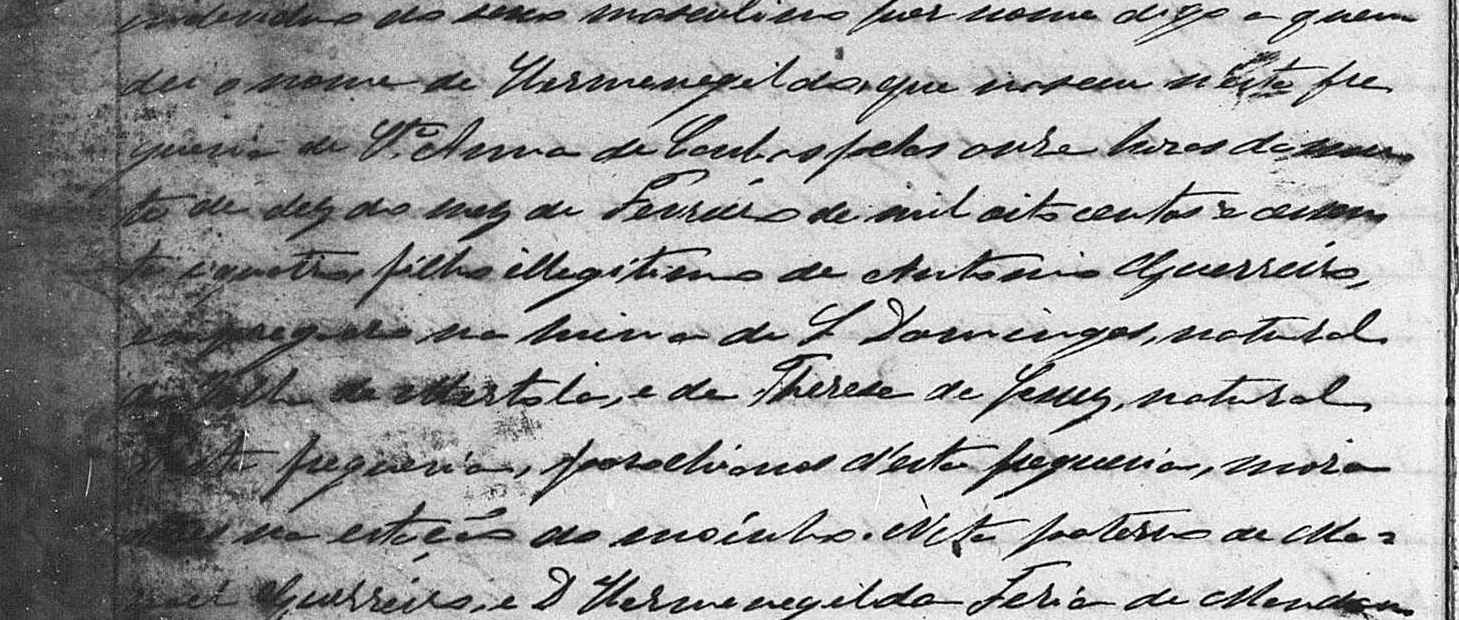 individuo do sexo masculino por nome digo a quem
dei o nome de Hermenegildo, que nasceu n'esta fre
guesia de Stª Anna de Cambas pelas onze horas da nou
te de dez do mez de Fevreiro de mil oito centos e oiten
ta e quatro, filho illegitimo de Antonio Guerreiro,
empregado na mina de S Domingos, natural
da Villa de Mertola, e de Thereza de Jesus, natural
d'esta freguesia, parochianos d'esta freguesia, mora
dores na estação do moinho. Neto paterno de Ma=
nuel Guerreiro, e D Hermenegilda Feria de